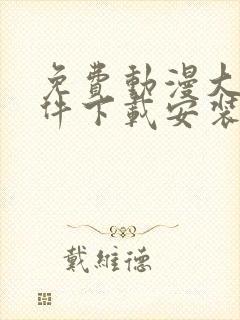 免費動漫大
件下載安裝
戴維德